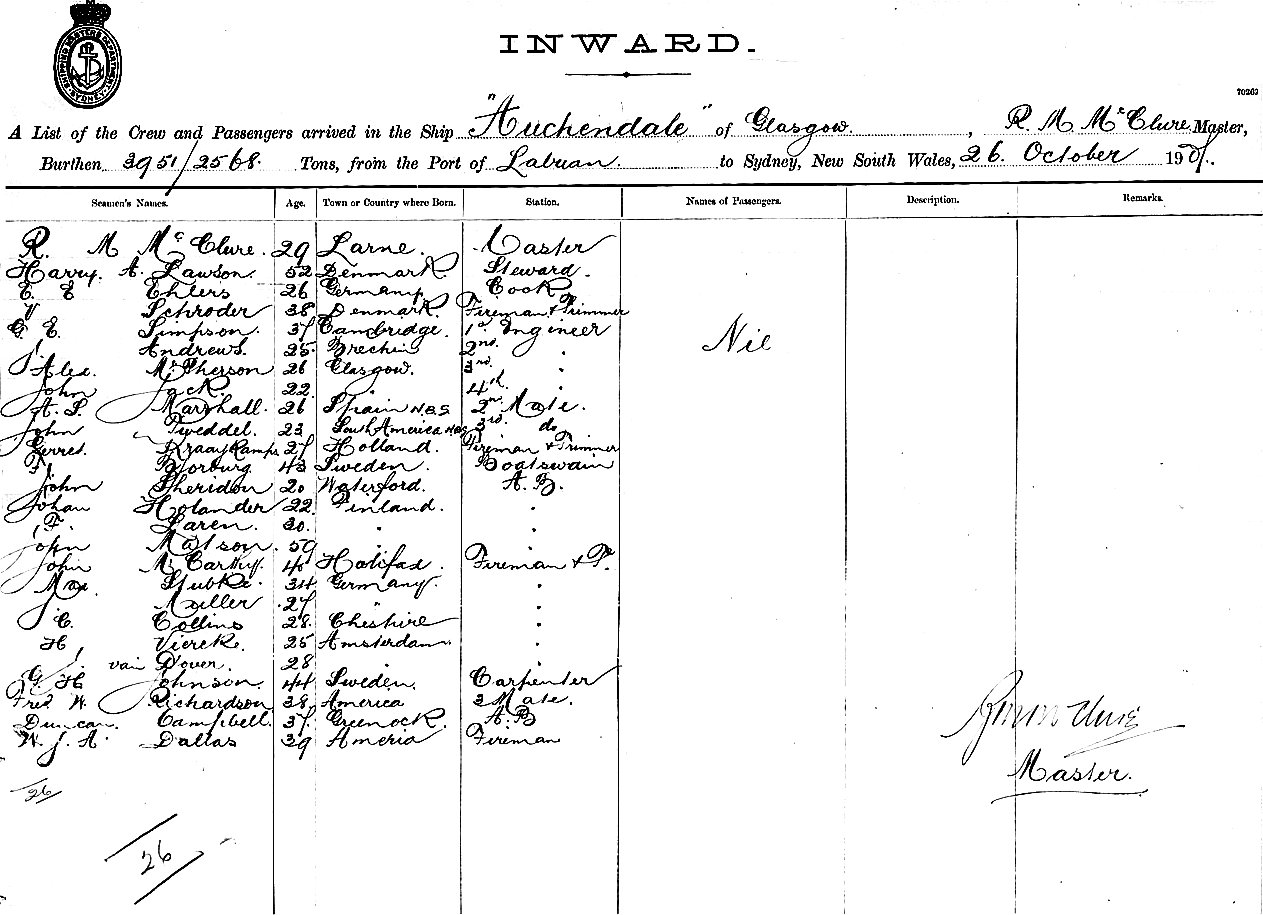 SHIPPING MASTERS DEPARTMENT SYDNEY
INWARD.
70263
A List of the Crew and Passengers arrived in the Ship "Auchendale" of Glasgow. , R. M. McClure Master,
Burthen 3951/2568. Tons, from the Port of Labuan. to Sydney, New South Wales, 26. October 190
Seamen's Names. Age. Town or Country where Born. Station. Names of Passengers. Description. Remarks.
R. M McClure. 29 Larne. Master
Harry. A. Lawson. 52 Denmark. Steward.
E. E Ehlers 26 Germany Cook
V Schroder 38 Denmark. Fireman & Trimmer
G. E. Simpson. 37 Cambridge. 1st Engineer
J Andrews. 25. Brechin 2nd. "
Nil
Alec. McPherson 26 Glasgow. 3rd. "
John Jack. 22. " 4th. "
A. S. Marshall. 26 Spain N.B.S 2nd Mate.
John Tweddel. 23 South America NBS 3rd. do
Gerret. Kraay Kamps 27 Holland. Fireman & Trimmer
F. Borburg 43 Sweden. Boatswain
John Sheridon 20 Waterford. A. B.
Johan Holander 22 Finland. "
F. Laren. 30. " "
John Matson. 59 " "
John McCarthy. 40 Halifax. Fireman & T.
Max. Stubke. 34 Germany. "
J. Miller 27 " "
C. Collins 28. Cheshire "
H, Viereke. 25 Amsterdam. "
J. van Dover. 28 " "
G. H Johnson. 44 Sweden. Carpenter
Fred W. Richardson 38, America 2 Mate.
Duncan. Campbell. 37. Greenock. A. B
W. J. A. Dallas 39 Ameria Fireman
Master.
26
26